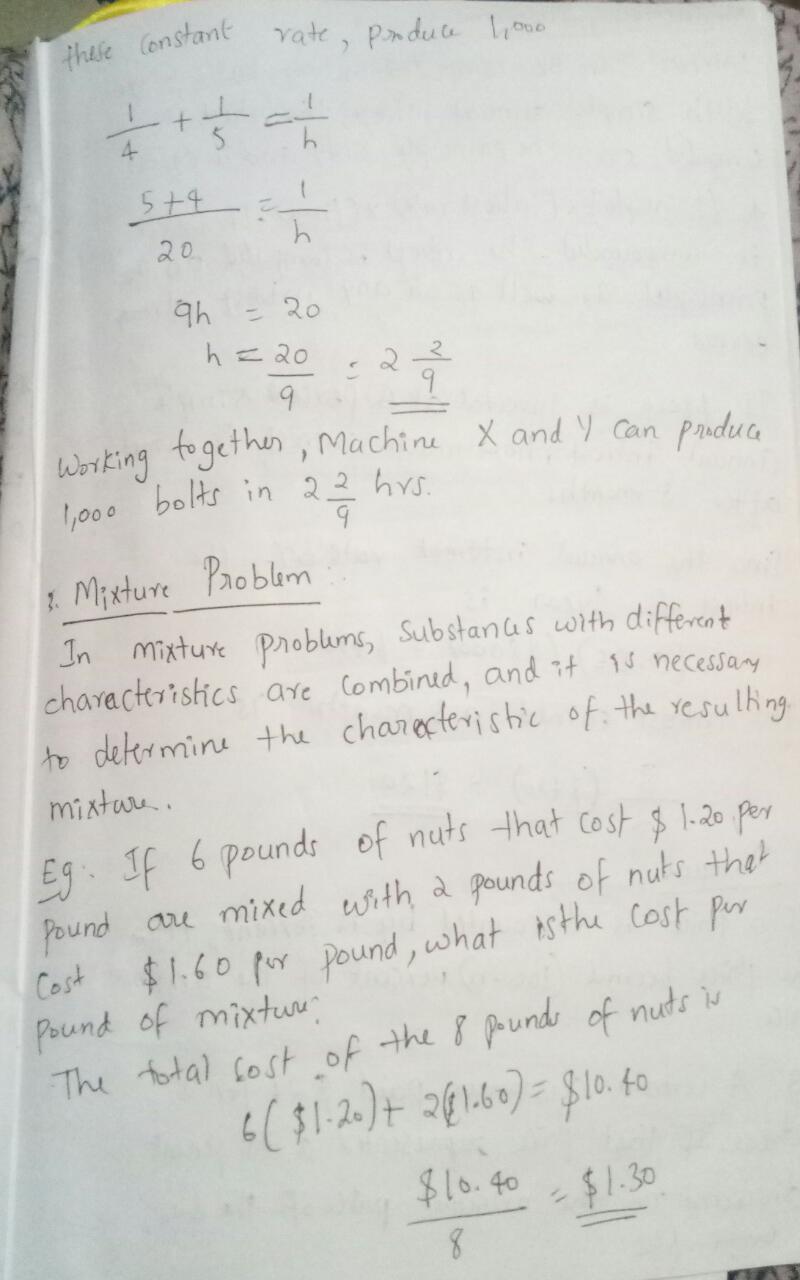 these constant rate, produce 1,000
1/4 + 1/5 = 1/h
5+4/20 = 1/h
9h = 20
h = 20/9 = 2 2/9
Working together, Machine X and Y can produce
1,000 bolts in 2 2/9 hrs.
8. Mixture Problem:
In mixture problems, Substances with different
characteristics are combined, and it is necessary
to determine the characteristic of the resulting
mixture.
Eg. If 6 pounds of nuts that cost $ 1.20 per
pound are mixed with 2 pounds of nuts that
Cost $1.60 per pound, what is the cost per
pound of mixture?
The total cost of the 8 pounds of nuts is
6($1.20) + 2($1.60) = $10.40
$10.40/8 = $1.30